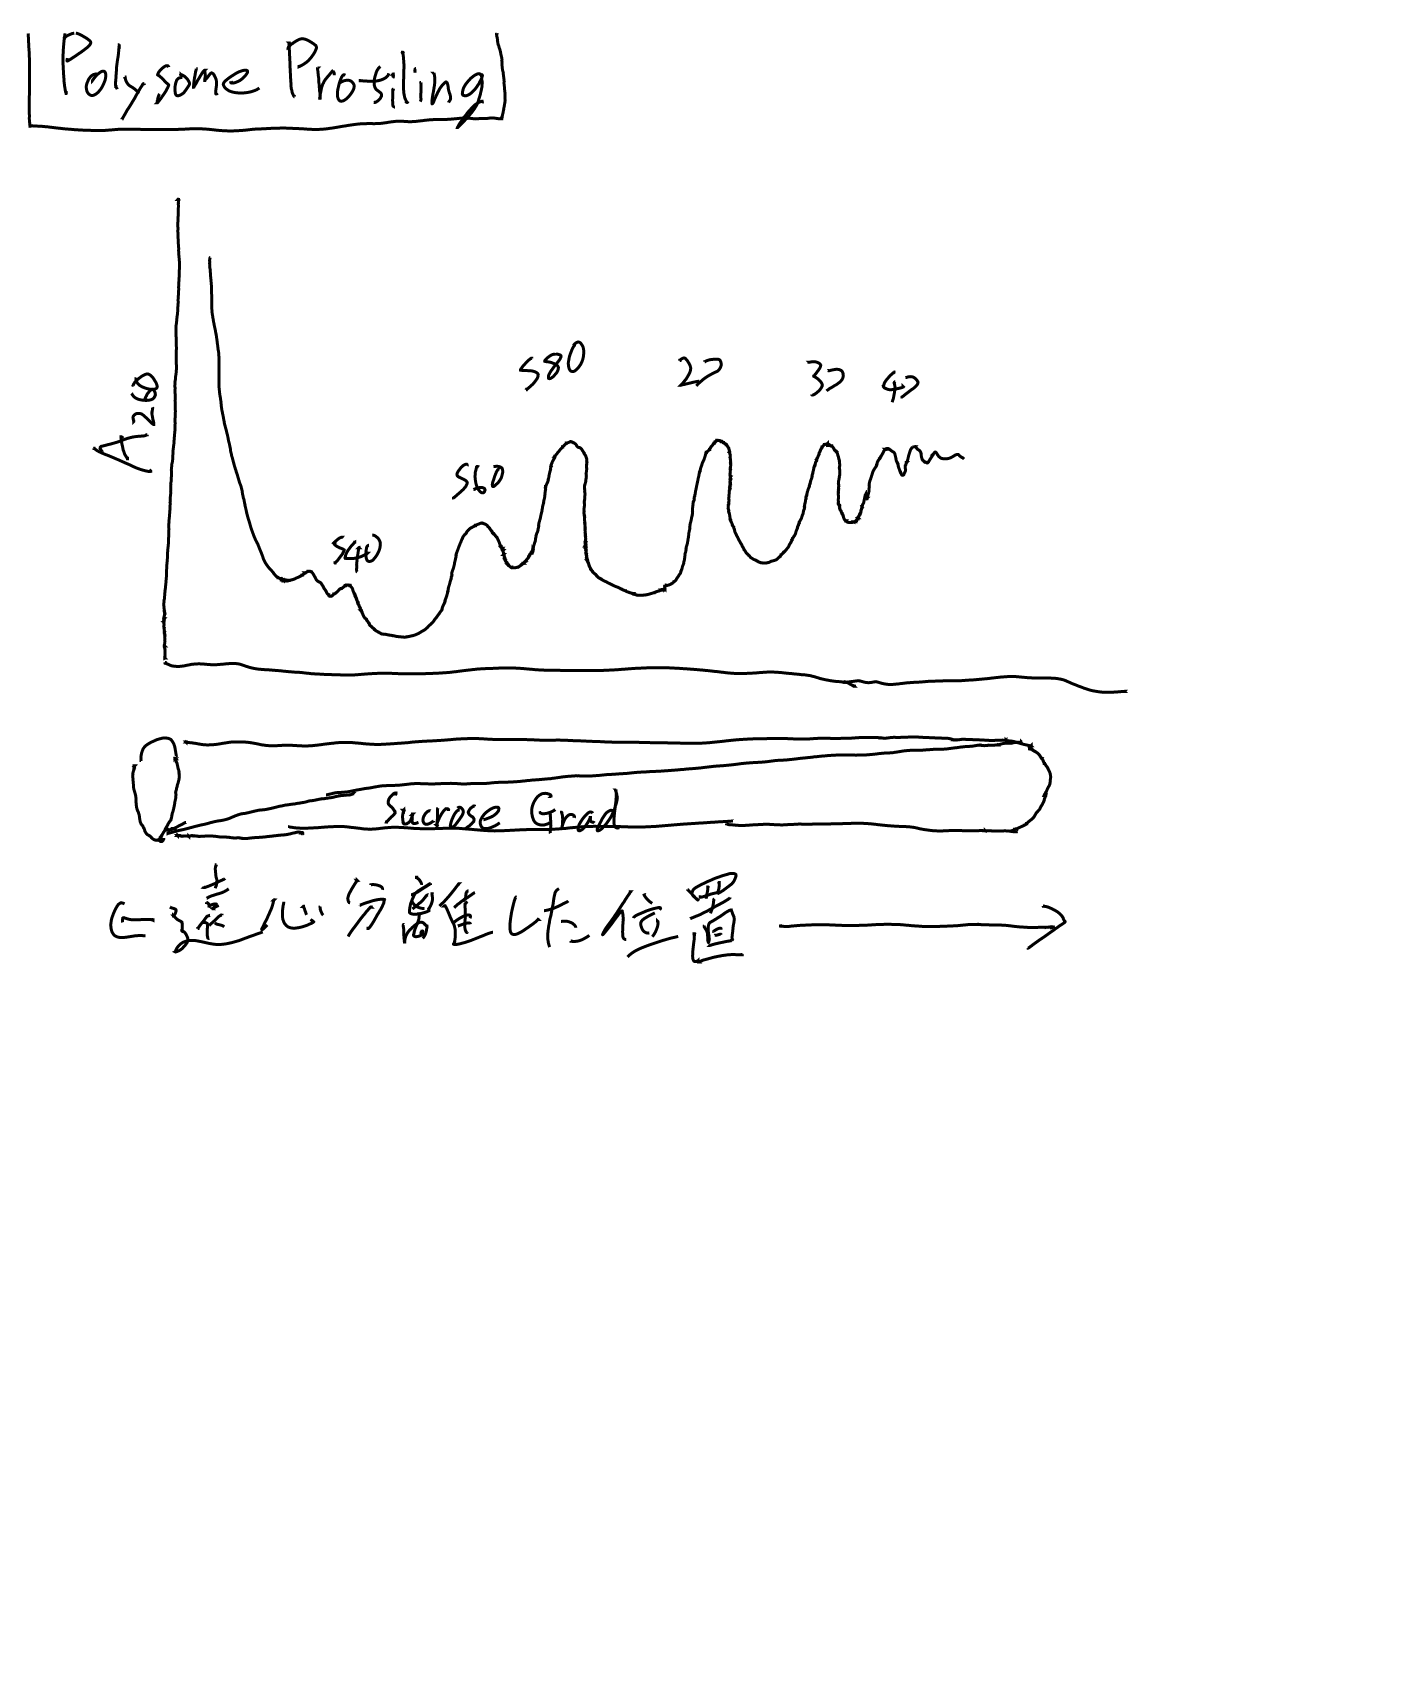 Polysome Profiling
A260
S40
S60
S80
2つ
3つ
4つ
Sucrose Grad
←遠心分離した位置→